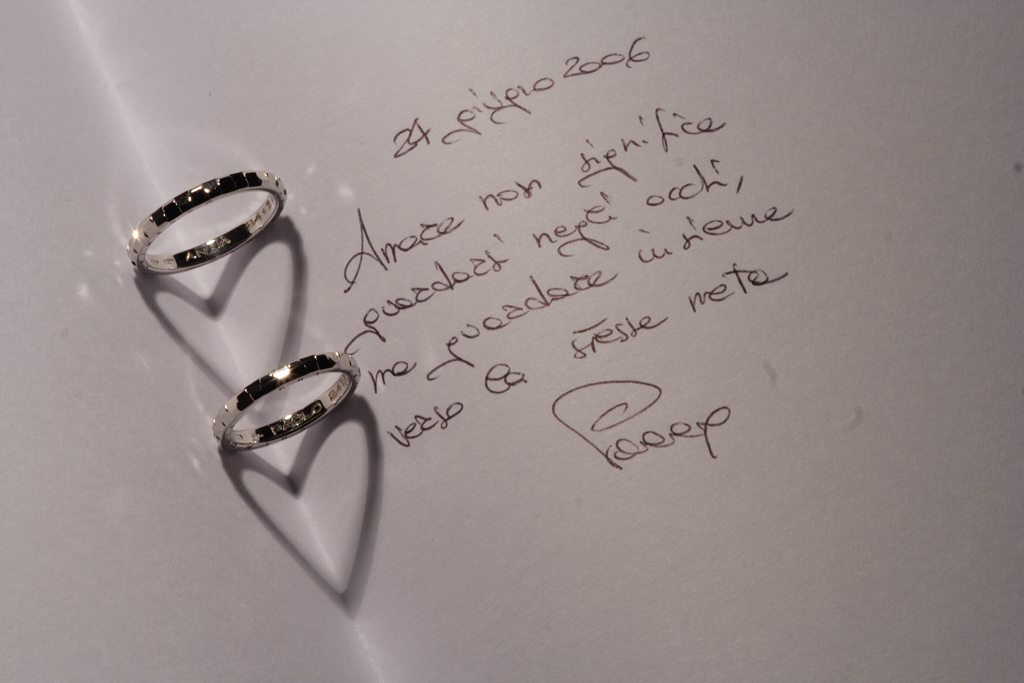 24 giugno 2006
Amare non significa
guardarsi negli occhi,
ma guardare insieme
verso la stessa meta
Paolo
ANNA
PAOLO